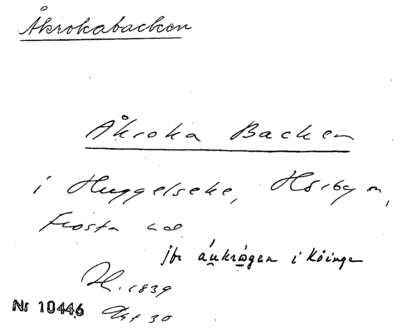 Åkrokabacken
Åkroka Backen
i Huggelseke, Hörby sn,
Frosta hd
jfr áukrógan i Köinge
H. 1839
Nr 10446 Akt 30